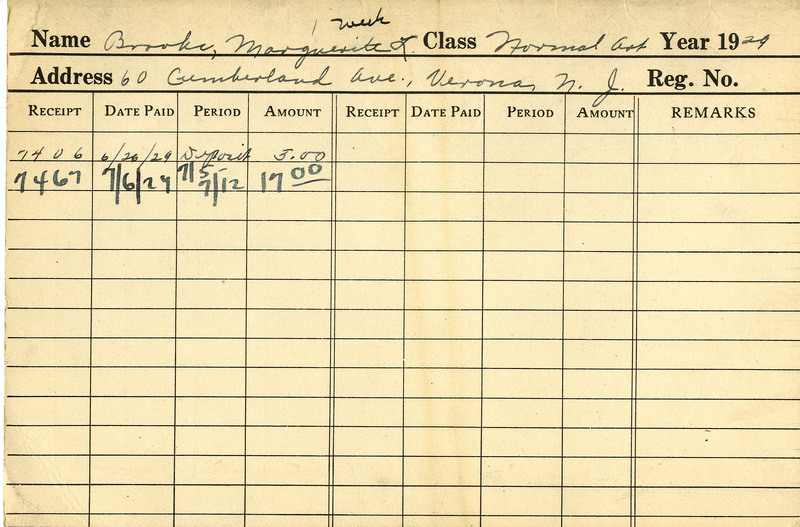 1 week
Name Brooke, Marguerite L. Class Normal Art Year 1929
Address 60 Cumberland Ave., Verona, N. J. Reg. No.
RECEIPT DATE PAID PERIOD AMOUNT RECEIPT DATE PAID PERIOD AMOUNT REMARKS
7406 6/26/29 Deposit 5.00
7467 7/6/29 7/5 7/12 17 00